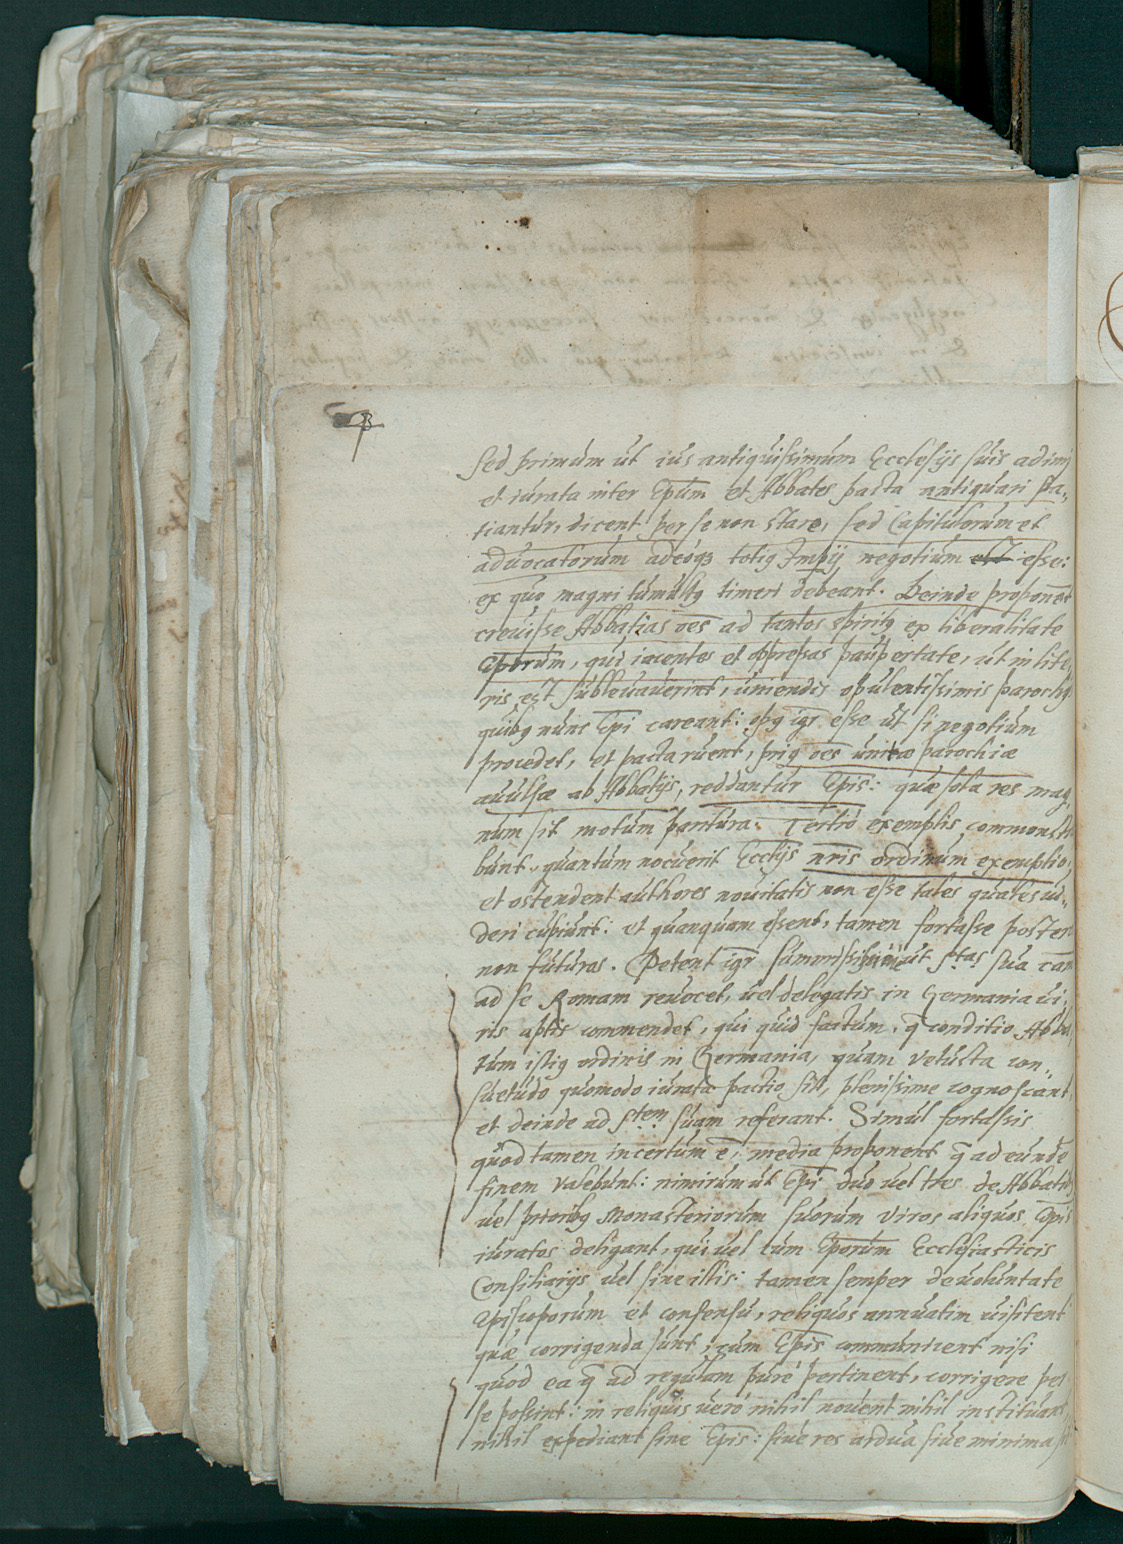 sed primum ut ius antiquissimum Ecclesijs suis adimj
et iurata inter Epum et Abbates pacta antiquari pa-
tiantur, dicent per se non stare, sed Capitulorum et
aduocatorum adeoq3 totiq Impij negotium est esse:
ex quo magni tumultq timeri debeant. Deinde proponent
creuisse Abbatias oes ad tantos spiritq ex liberalitate
Eporum, qui iacentes et oppressas paupertate, ut in lite-
ris est subleuauerint, uniendis opulentissimis parochijs
quibq nunc Epi careant: opq igr esse ut si negotium
procedet, et pacta ruent, priq oes unitæ parochiæ
auulsæ ab Abbatijs, reddantur Epis: quæ sola res mag-
num sit motum paritura. Tertio exemplis commonstra
bunt, quantum nocuerit Ecclijs nris ordinum exemptio,
et ostendent authores nouitatis non esse tales quales ui-
deri cupiunt: et quanquam essent, tamen fortasse posteros
non futuros. Petent igr summississime ut Stas sua cam
ad se Romam reuocet, uel delegatis in Germania ui-
ris aptis commendet, qui quid factum, q conditio Abba-
tum istiq ordinis in Germania, quam vetusta con-
suetudo quomodo iuratæ pactio sit, plenissime cognoscant
et deinde ad Stem suam referant. Simul fortassis
quod tamen incertum e, media proponent q ad eunde
finem valebunt: nimirum ut Epi duo uel tres de Abbatibq
uel prioribq Monasteriorum suorum viros aliquos Epis
iuratos deligant, qui uel cum Eporum Ecclesiasticis
Consiliarijs uel sine illis: tamen semper de uoluntate
Episcoporum et consensu, reliquos annuatim uisitent
quæ corrigenda sunt, cum Epis communicent nisi
quod ea q ad regulam pure pertinent, corrigere per
se possint: in reliquis uero nihil nouent nihil instituant
nihil expediant sine Epis: siue res ardua siue minima